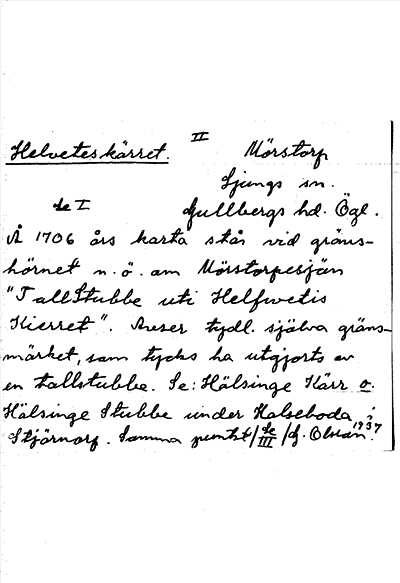 Helveteskärret. II Mörstorp
Ljungs sn.
Se I Gullbergs hd. Ögl.
Å 1706 års karta står vid gräns-
hörnet n.ö. om Mörstorpesjön
"TallStubbe uti Helfwetis
Kierret". Avser tydl. själva gräns-
märket, som tycks ha utgjorts av
en tallstubbe. Se: Hälsinge Kärr o.
Hälsinge Stubbe under Halseboda i
Stjärnorp. Samma punkt/Se III/G. Olsson. 1937